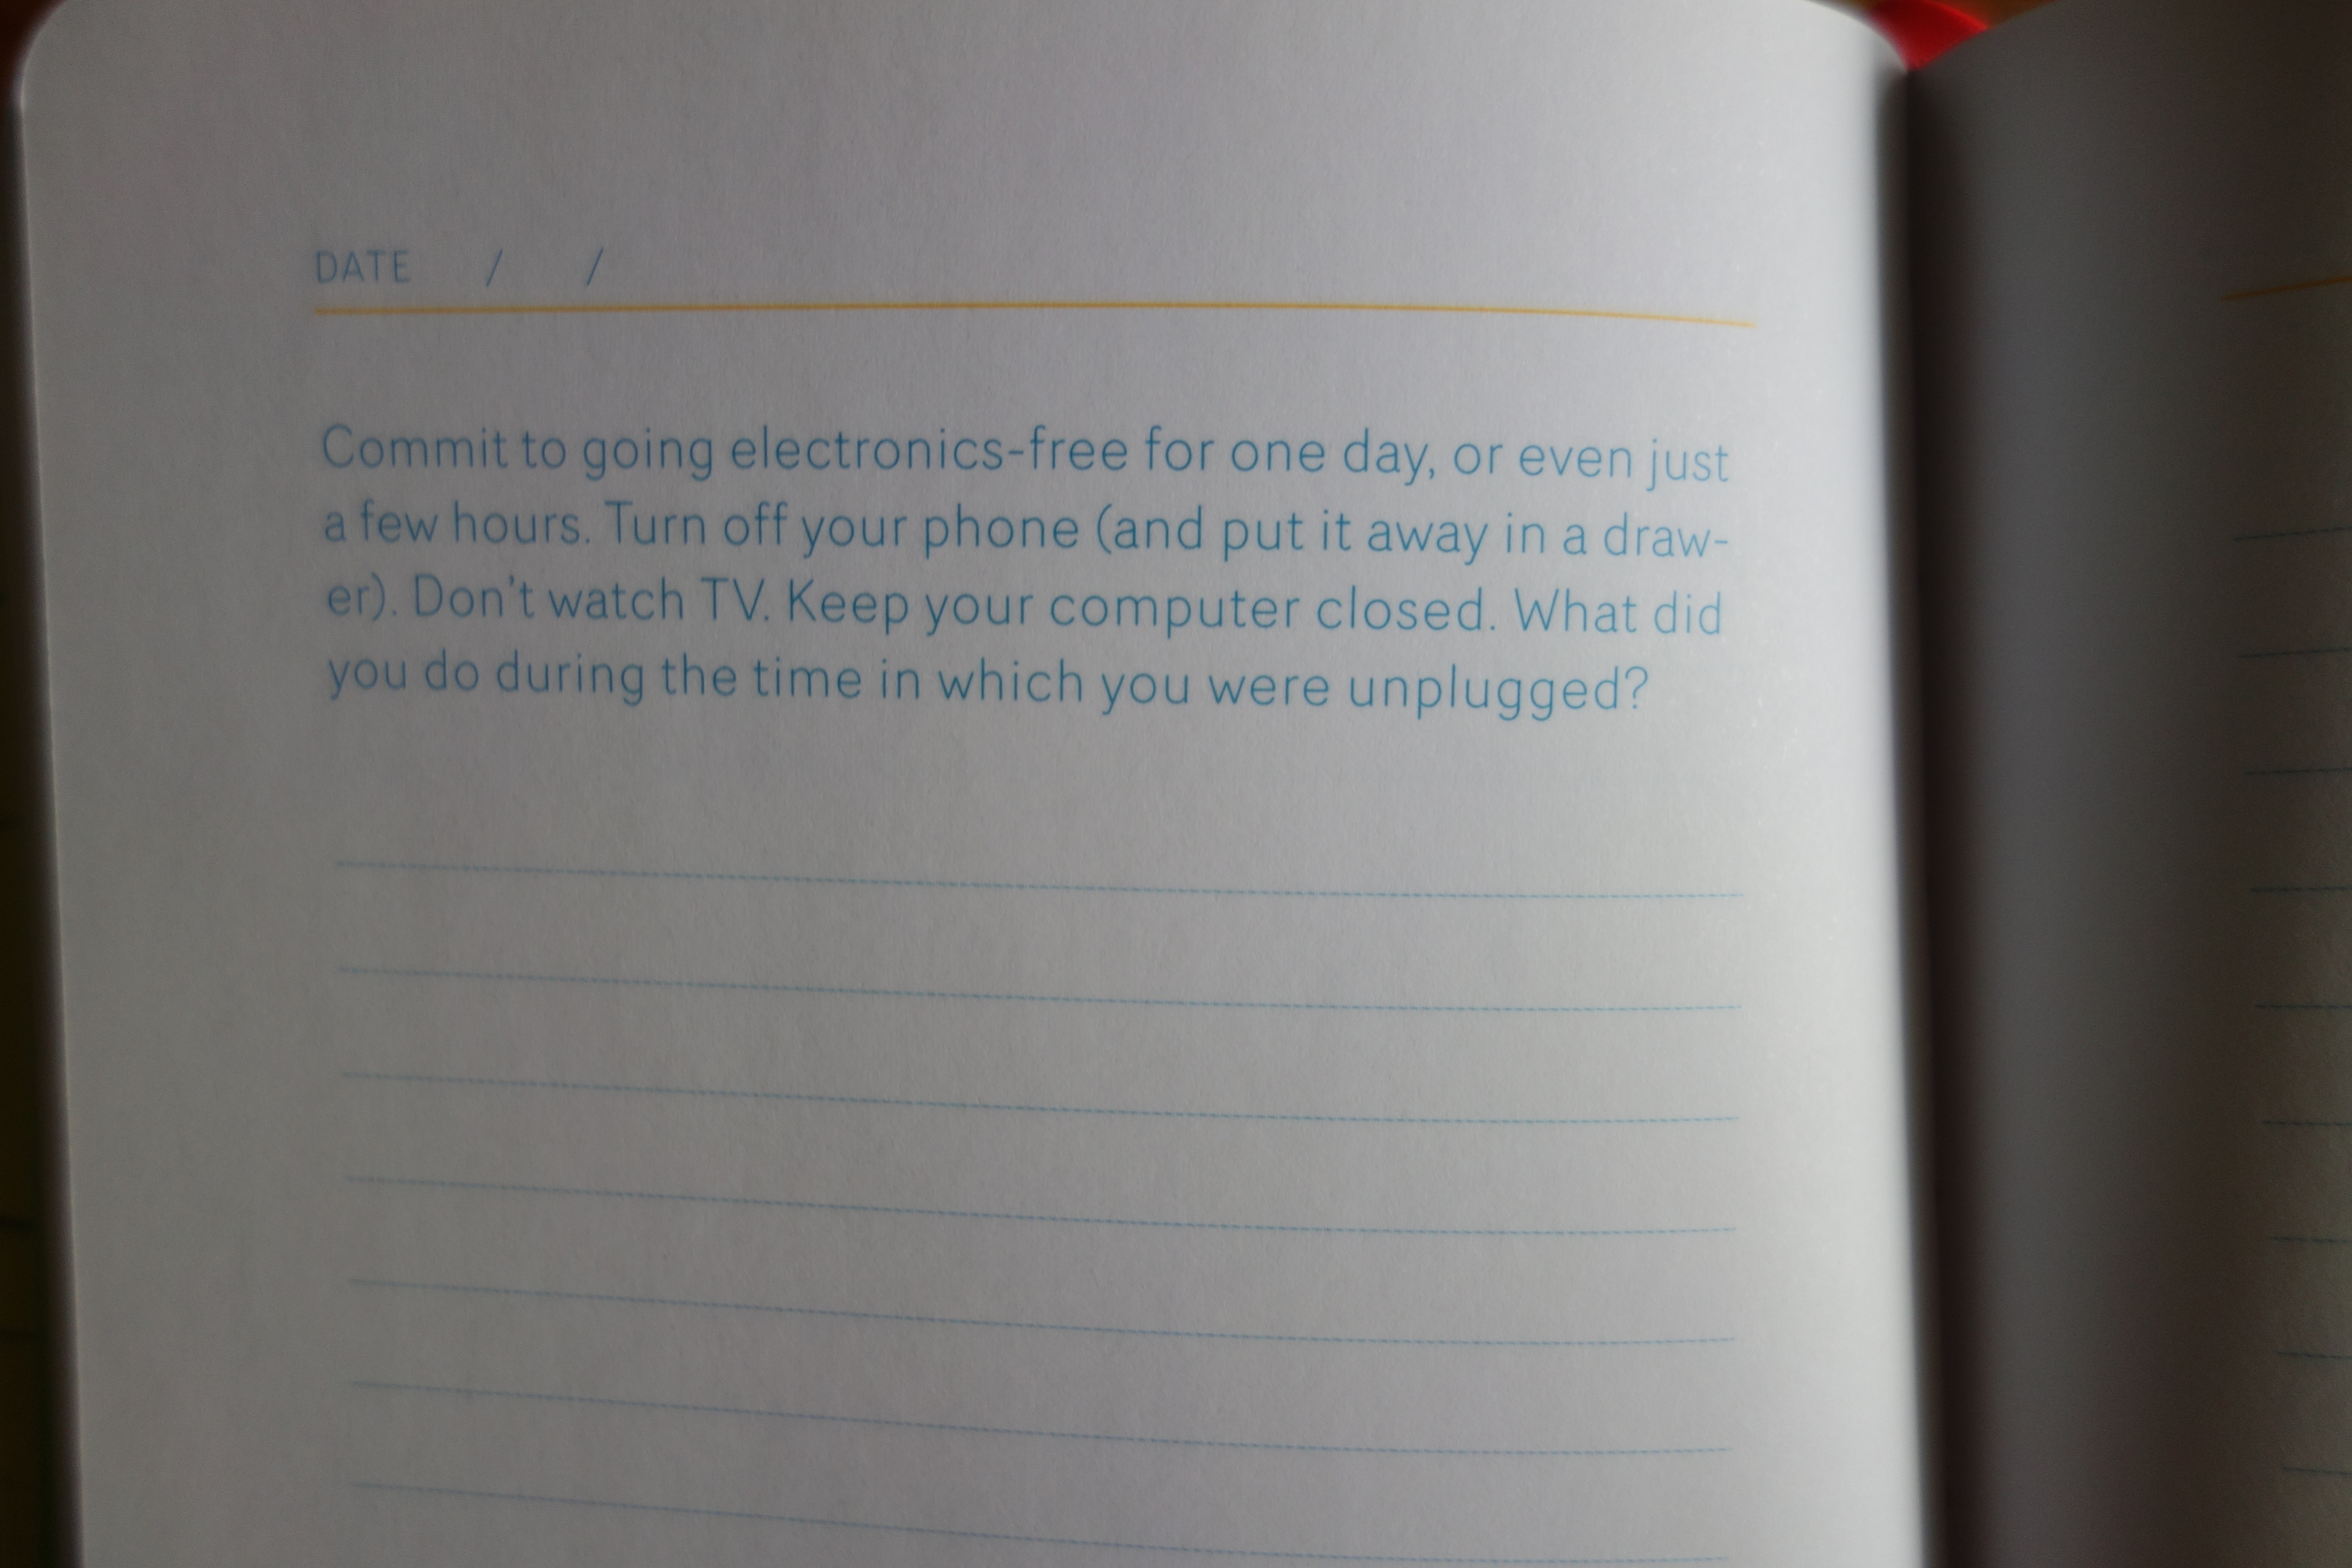 DATE / /
Commit to going electronics-free for one day, or even just
a few hours. Turn off your phone (and put it away in a draw-
er). Don't watch TV. Keep your computer closed. What did
you do during the time in which you were unplugged?